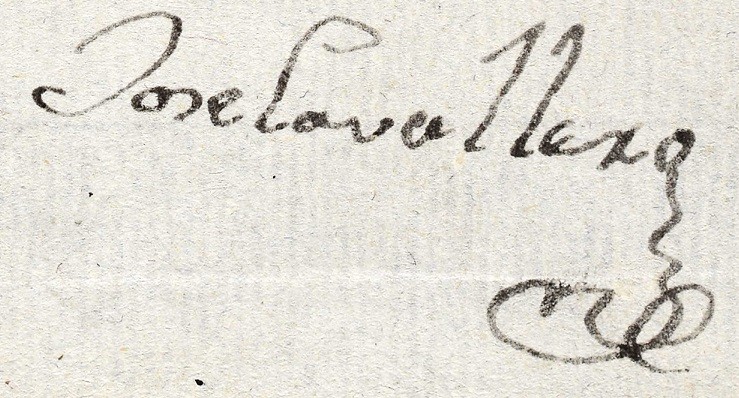 Jose Cavallero